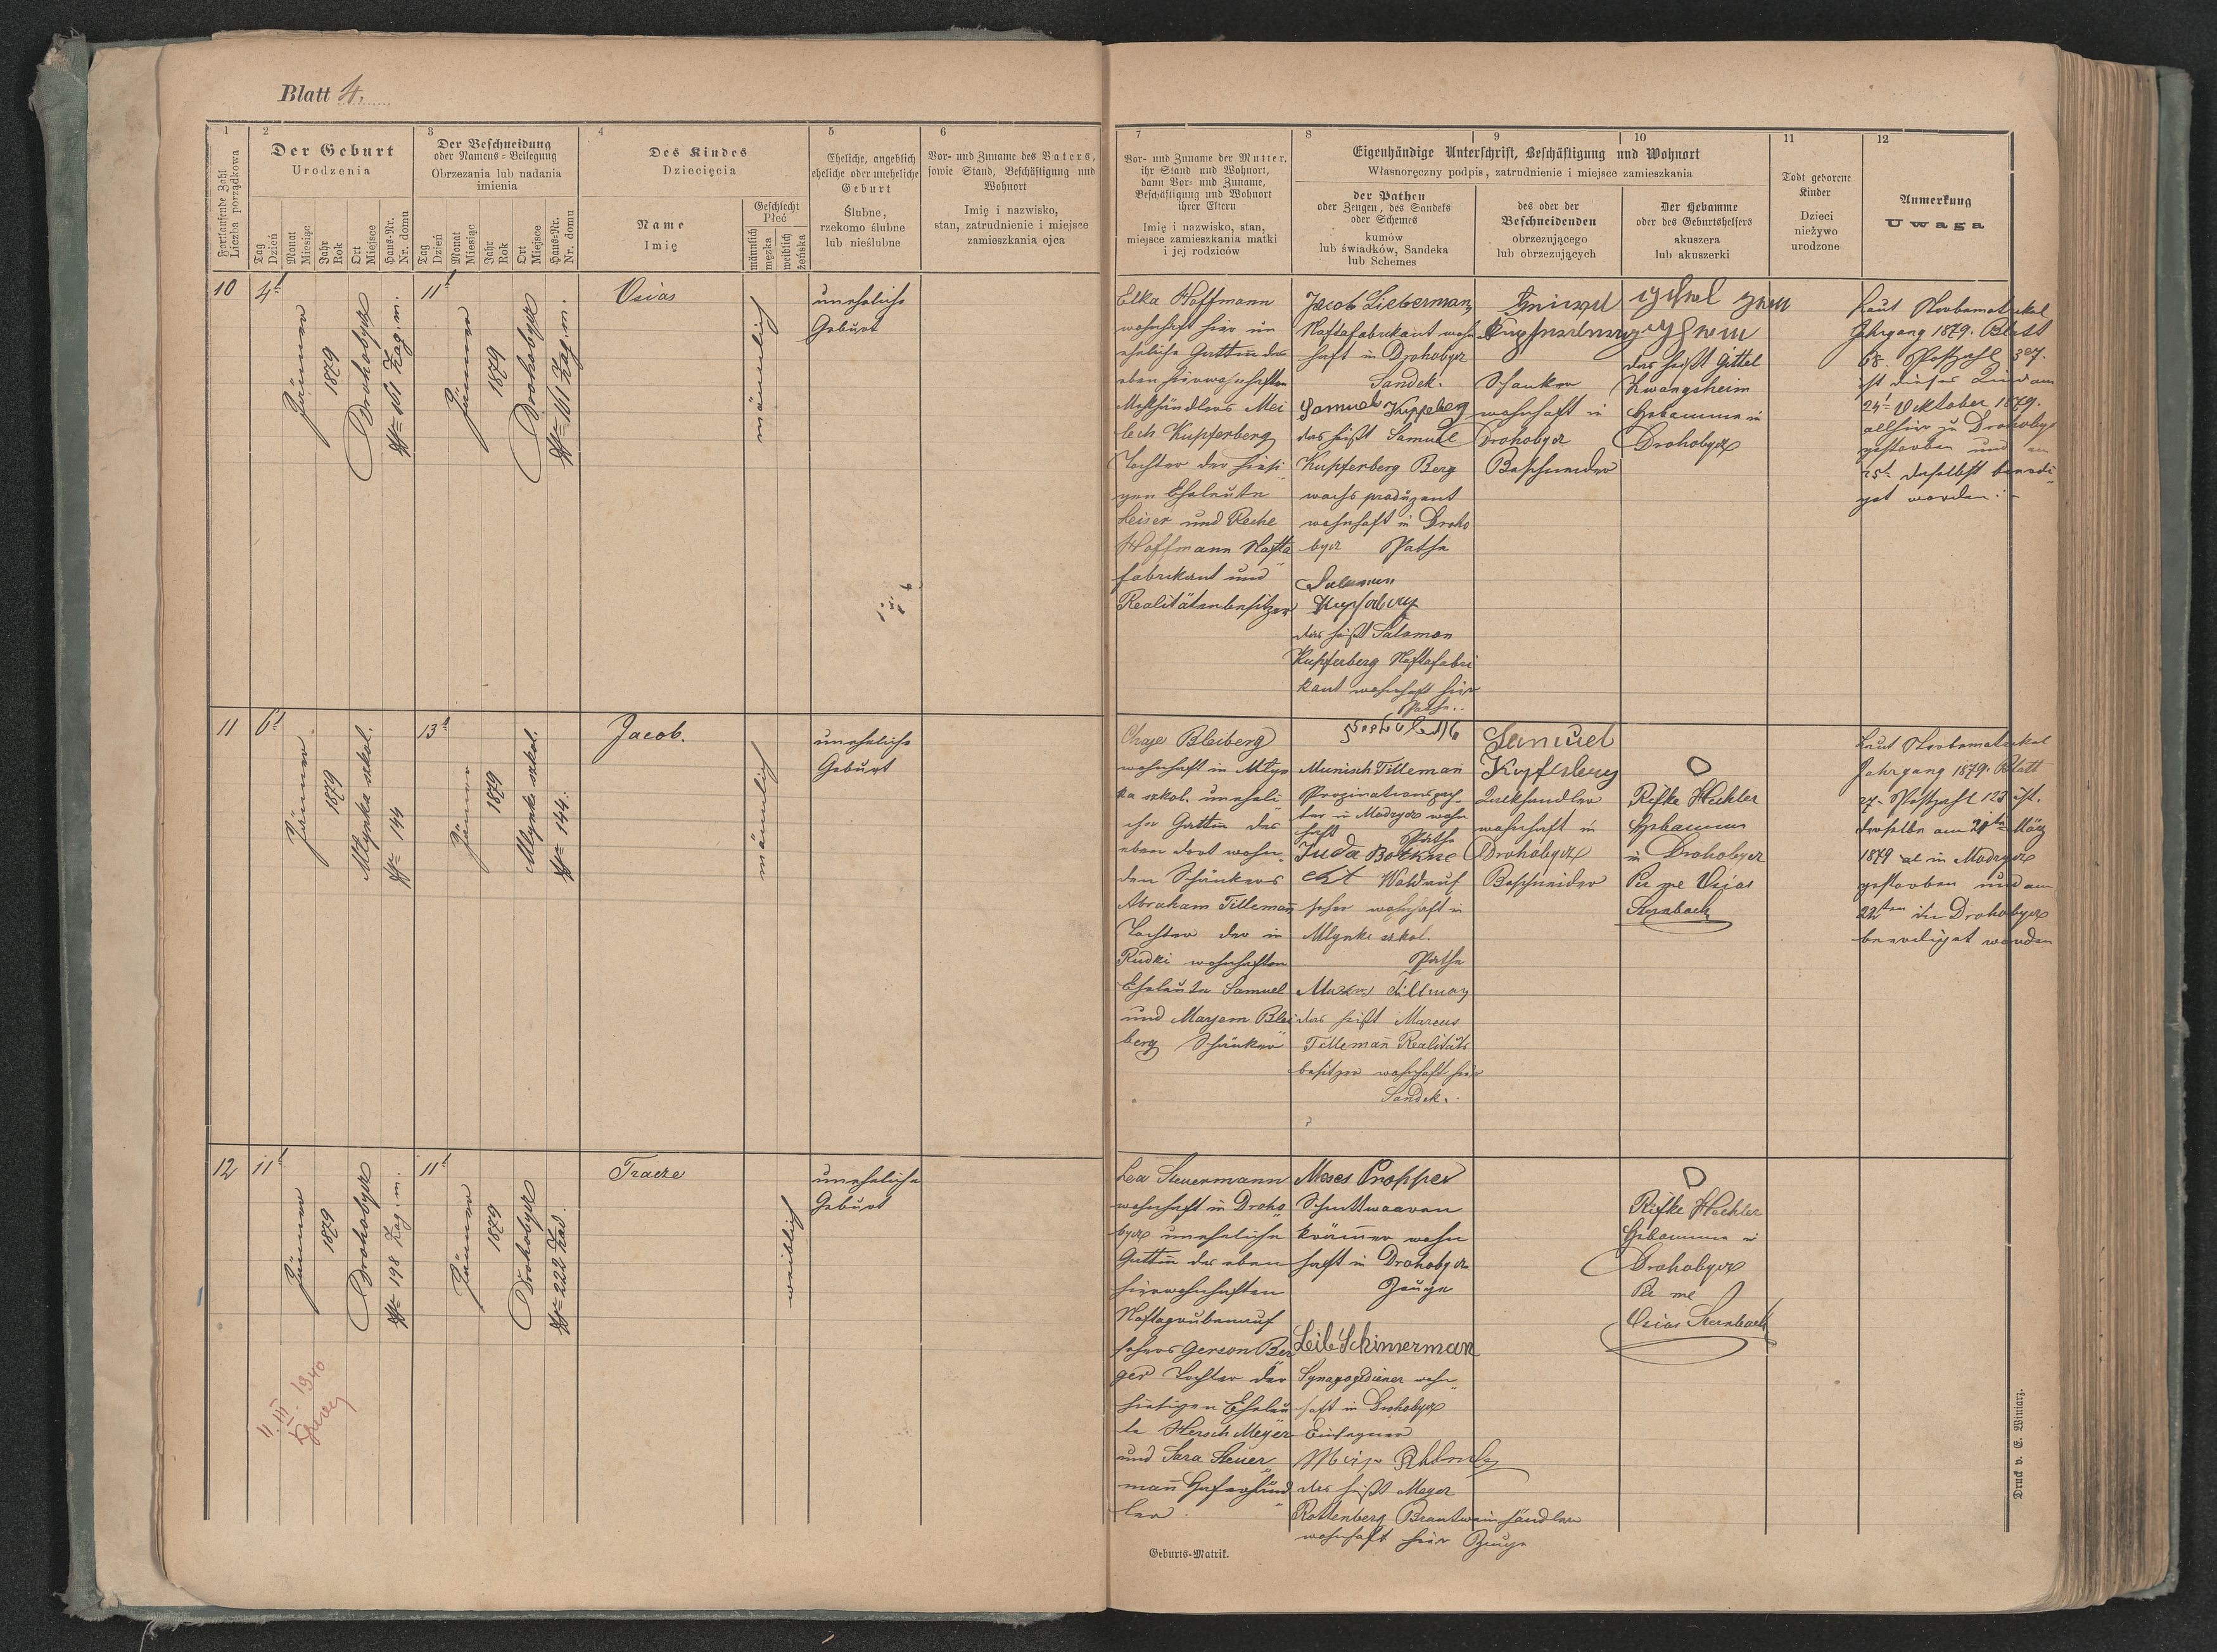 Blatt 4.
1
2
3
4
5
6
Fortlaufende Zahl
Liczba porządkowa
Der Geburt
Urodzenia
Tag
Dzień
Monat
Miesiąc
Jahr
Rok
Ort
Miejsce
Haus-Nr.
Nr. domu
Der Beschneidung
oder Namens-Beilegung
Obrzezania lub nadania
imienia
Tag
Dzień
Monat
Miesiąc
Jahr
Rok
Ort
Miejsce
Haus-Nr.
Nr. domu
Des Kindes
Dziecięcia
Name
Imię
Geschlecht
Płeć
männlich
męzka
weiblich
żeńska
Eheliche, angeblich
eheliche oder uneheliche
Geburt
Ślubne,
rzekomo ślubne
lub nieślubne
Vor- und Zuname des Vaters,
sowie Stand, Beschäftigung und
Wohnort
Imię i nazwisko,
stan, zatrudnienie i miejsce
zamieszkania ojca
7
8
9
10
11
12
Vor- und Zuname der Mutter,
ihr Stand und Wohnort,
dann Vor- und Zuname,
Beschäftigung und Wohnort
ihrer Eltern
Imię i nazwisko, stan,
miejsce zamieszkania matki
i jej rodziców
Eigenhändige Unterschrift, Beschäftigung und Wohnort
Własnoręczny podpis, zatrudnienie i miejsce zamieszkania
der Pathen
oder Zeugen, des Sandeks
oder Schemes
kumów
lub świadków, Sandeka
lub Schemes
des oder der
Beschneidenden
obrzezującego
lub obrzezujących
Der Hebamme
oder des Geburtshelfers
akuszera
lub akuszerki
Todt geborene
Kinder
Dzieci
nieżywo
urodzone
Anmerkung
Uwaga
10
4t
Jänner
1879
Drohobycz
No 161 Zag. m.
11t
Jänner
1879
Drohobycz
No 161 Zag. m.
Osias
männlich
uneheliche
Geburt
Elka Hoffmann
wohnhaft hier un
eheliche Gattin des
eben hierwohnhaften
Mehlhändlers Mei
lech Kupferberg
Tochter der hiesi
gen Eheleute
Leiser und Reche
Hoffmann Nafta
fabrikant und
Realitätenbesitzer
Jacob Lieberman
Naftafabrikant wohn
haft in Drohobycz
Sandek.
Samuel Kuppelberg
das heißt Samuel
Kupferberg Berg
wachs produzent
wohnhaft in Droho
bycz Pathe
Salamon
Kupferberg
das heißt Salomon
Kupferberg Naftafabri
kant wohnhaft hier
Pathe.
Schanker
wohnhaft in
Drohobycz
Beschneider
das heißt Gittel
Zwangsheim
Hebamme in
Drohobycz
Laut Sterbematrikel
Jahrgang 1879. Blatt
68. Postzahl 307.
ist dieses Kind am
24t Oktober 1879.
allhier zu Drohobycz
gestorben und am
25t daselbst beerdi
get worden.
11
6t
Jänner
1879
Mlynka szkol.
No 144
13t
Jänner
1879
Mlynka szkol.
No 144.
Jacob.
männlich
uneheliche
Geburt
Chaje Bleiberg
wohnhaft in Mlyn
ka szkol. uneheli
che Gattin des
eben dort wohn
den Schänkers
Abraham Tilleman̄
Tochter der in
Rudki wohnhaften
Eheleute Samuel
und Marjem Blei
berg Schänker
Munisch Tilleman̄
Propinationspäch
ter in Modrycz wohn
haft Pathe
Juda Bothne
cht Waldauf
seher wohnhaft in
Mlynki szkol.
Pathe
Tillman
das heißt Marcus
Tilleman̄ Realitäts
besitzer wohnhaft hier
Sandek.
Samuel
Kupferberg
wohnhaft in
Drohobycz
Beschneider
Rifke Hechler
Hebamme
in Drohobycz
Per me Osias
Sternbach
Laut Sterbematrikel
Jahrgang 1879. Blatt
27. Postzahl 123 ist.
derselbe am 21ten März
1879 in Modrycz
gestorben und am
22ten in Drohobycz
beerdiget worden
12
11t
Jänner
1879
Drohobycz
No 198 Zag. m.
11t
Jänner
1879
Drohobycz
No 222 Zad.
Tracze
weiblich
uneheliche
Geburt
Lea Steuermann
wohnhaft in Droho
bycz uneheliche
Gattin des eben
hierwohnhaften
Naftagrubenauf
sehers Gerson Ber
ger Tochter der
hiesigen Eheleu
te Hersch Mejer
und Sara Steuer
man̄ Haferhänd
ler.
Moses Propper
Schnittwaaren
krämer wohn
haft in Drohobycz
Zeuge
Leib Schimerman
Synagogdiener wohn
haft in Drohobycz
Einsegner
das heißt Mejer
Rottenberg Brantweinhändler
wohnhaft hier Zeuge
Rifke Hechler
Hebamme in
Drohobycz
Per me
Osias Sternbach
11. III. 1940
Geburts-Matrik.
Druck v. E. Winiarz.